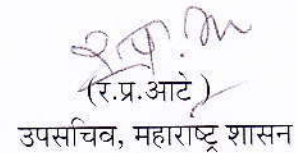 (र.प्र.आटे )
उपसचिव, महाराष्ट्र शासन